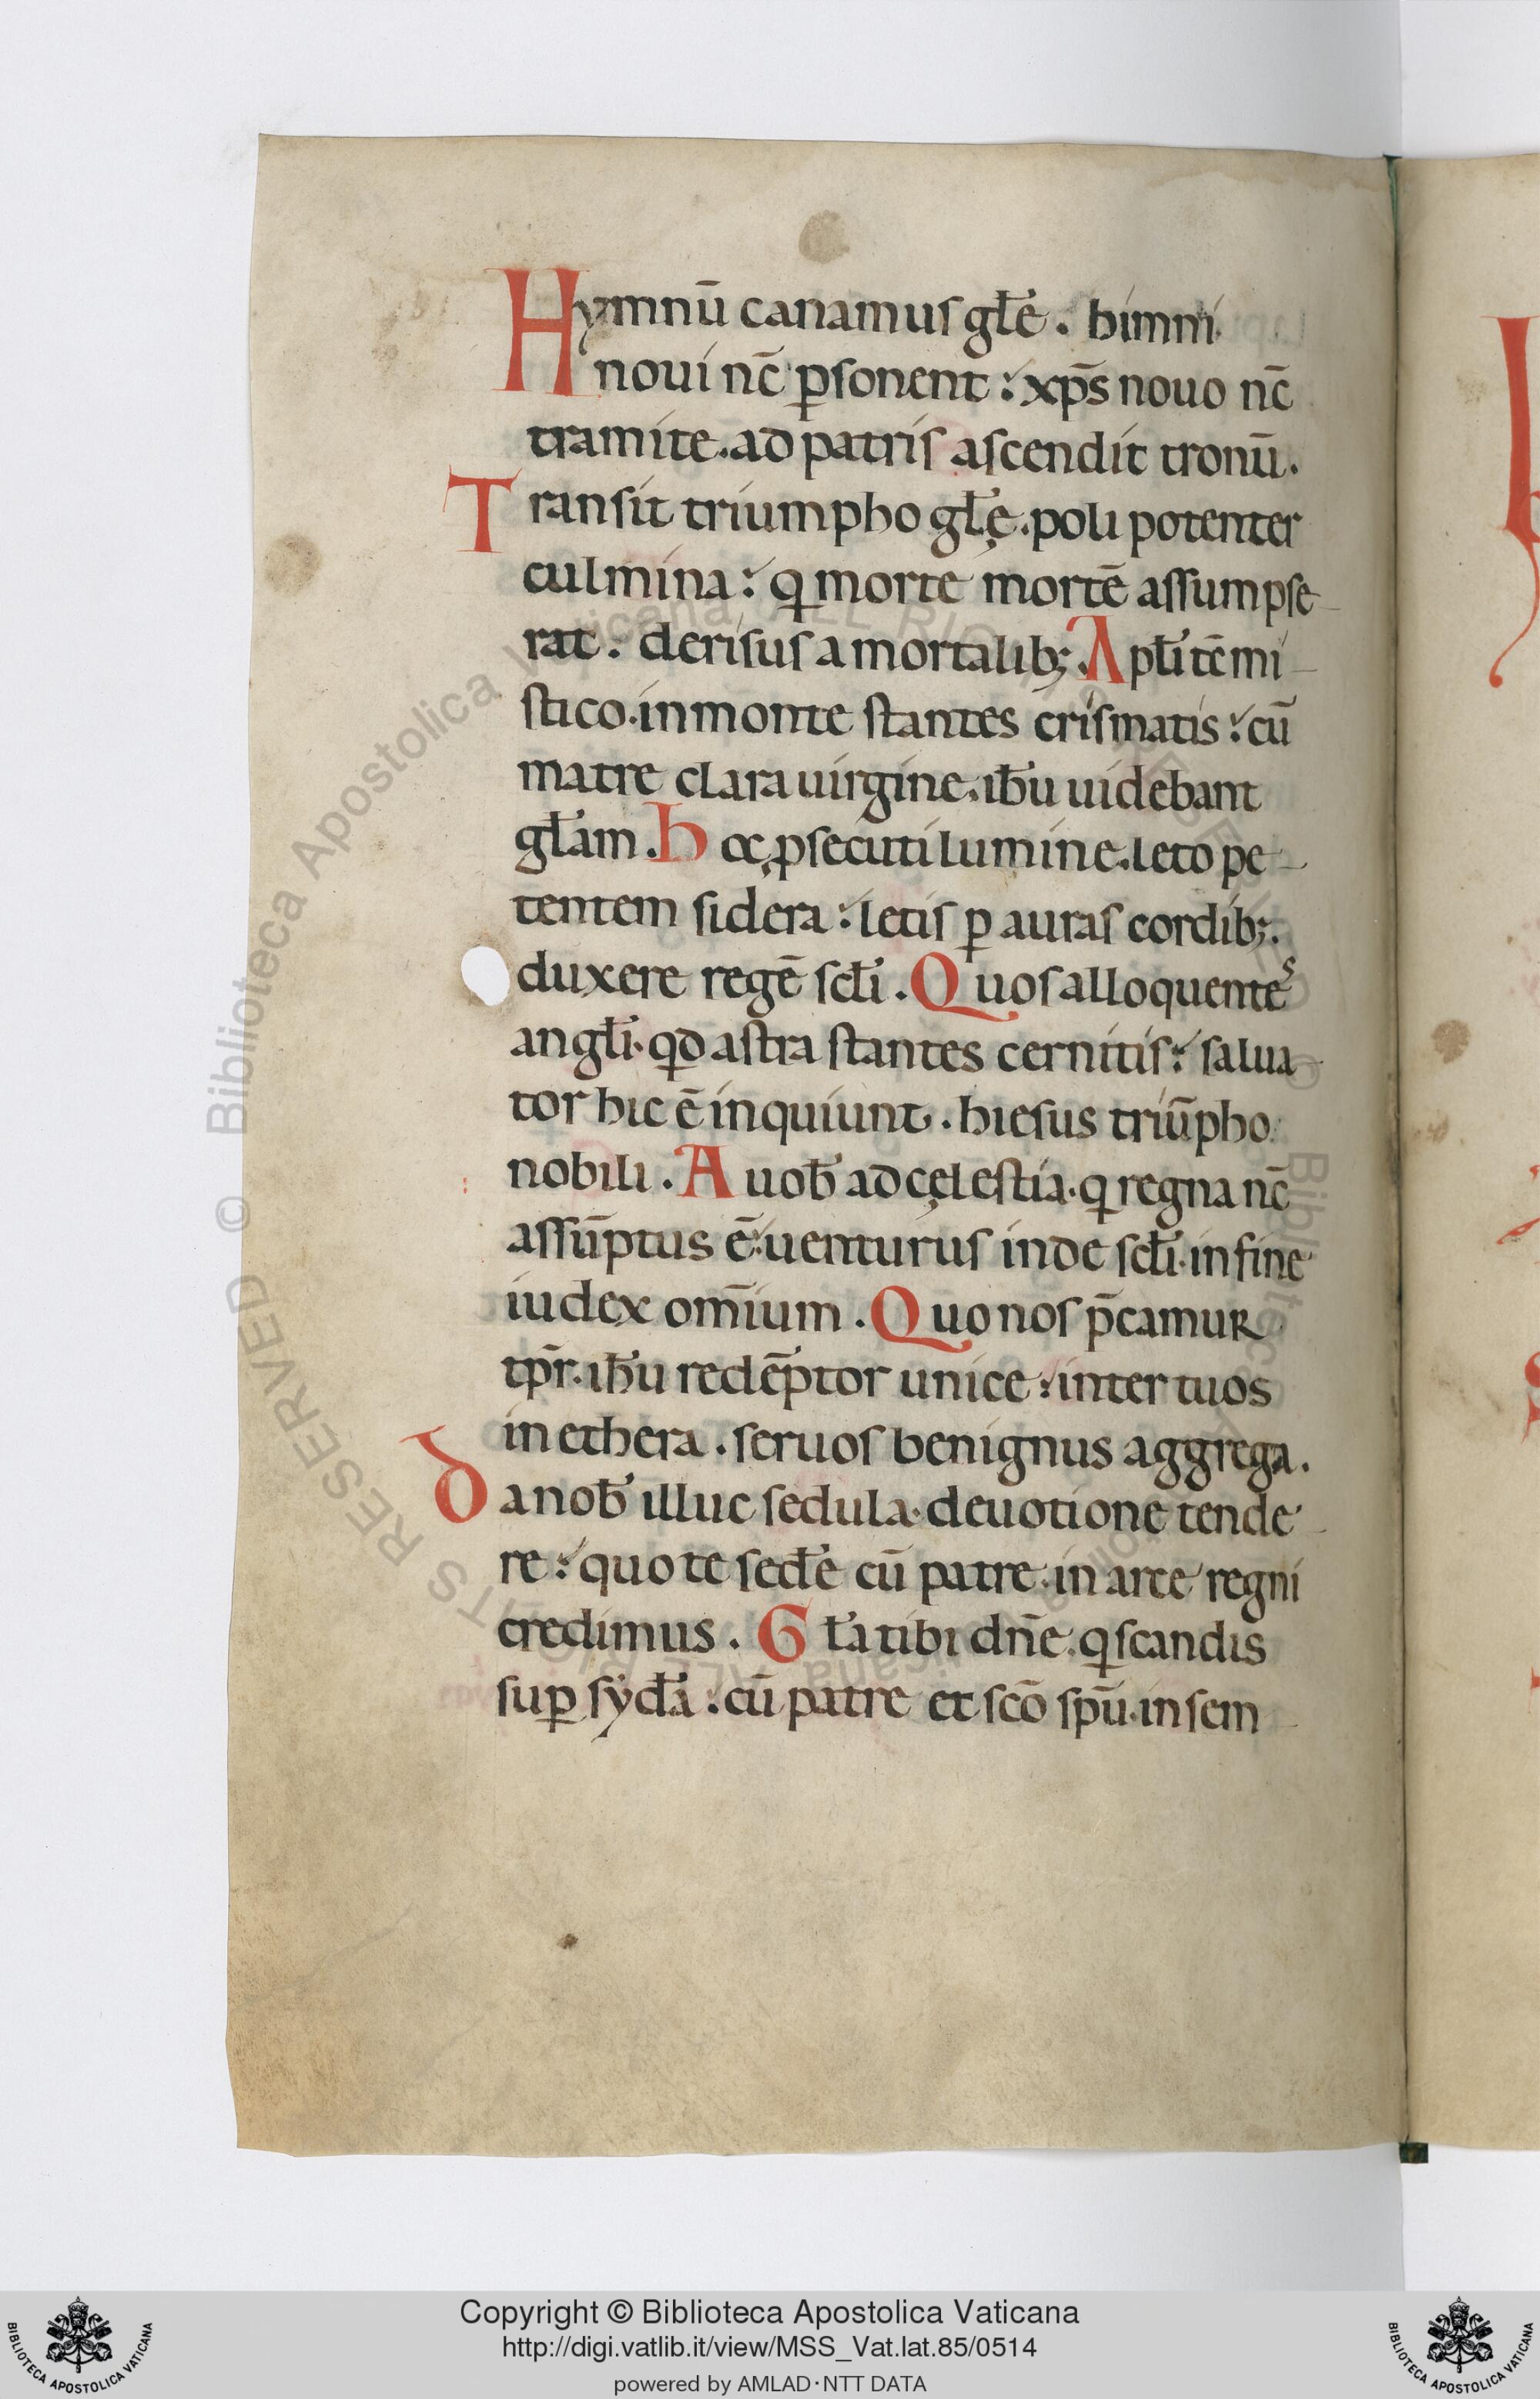 Hymnū canamus gl̄e . himni
noui nc̄ ꝑsonent : xp̄s nouo nc̄
tramite . ad patris ascendit tronū .
Transit triumpho gl̄ę . poli potenter
culmina : q morte mortē assumpse
rat . derisus a mortalib; . Apl̄i tē mi
stico . in monte stantes crismatis : cū
matre clara uirgine . ih̄u uidebant
gl̄am . Hoc ꝓsecuti lumine . leto pe
tentem sidera : letis ꝑ auras cordib; .
duxere regē scl̄i . Quos alloquentes
angl̄i . qd astra stantes cernitis : salua
tor hic ē inquiunt . hiesus triūpho
nobili . A uob̄ ad cęlestia . q regna nc̄
assūptus ē : uenturus inde scl̄i . in fine
iudex om̄ium . Quo nos p̄camur
tp̄r . ih̄u redēptor unice : inter tuos
in ethera . seruos benignus aggrega .
Da nob̄ illuc sedula . deuotione tende
re : quo te sed̄e cū patre . in arce regni
credimus . Gl̄a tibi dn̄e . q scandis
suꝑ syd̄a . cū patre et sc̄o sp̄u . in sem
Copyright © Biblioteca Apostolica Vaticana
http://digi.vatlib.it/view/MSS_Vat.lat.85/0514
powered by AMLAD·NTT DATA
BIBLIOTECA APOSTOLICA VATICANA
BIBLIOTECA APOSTOLICA VATICANA